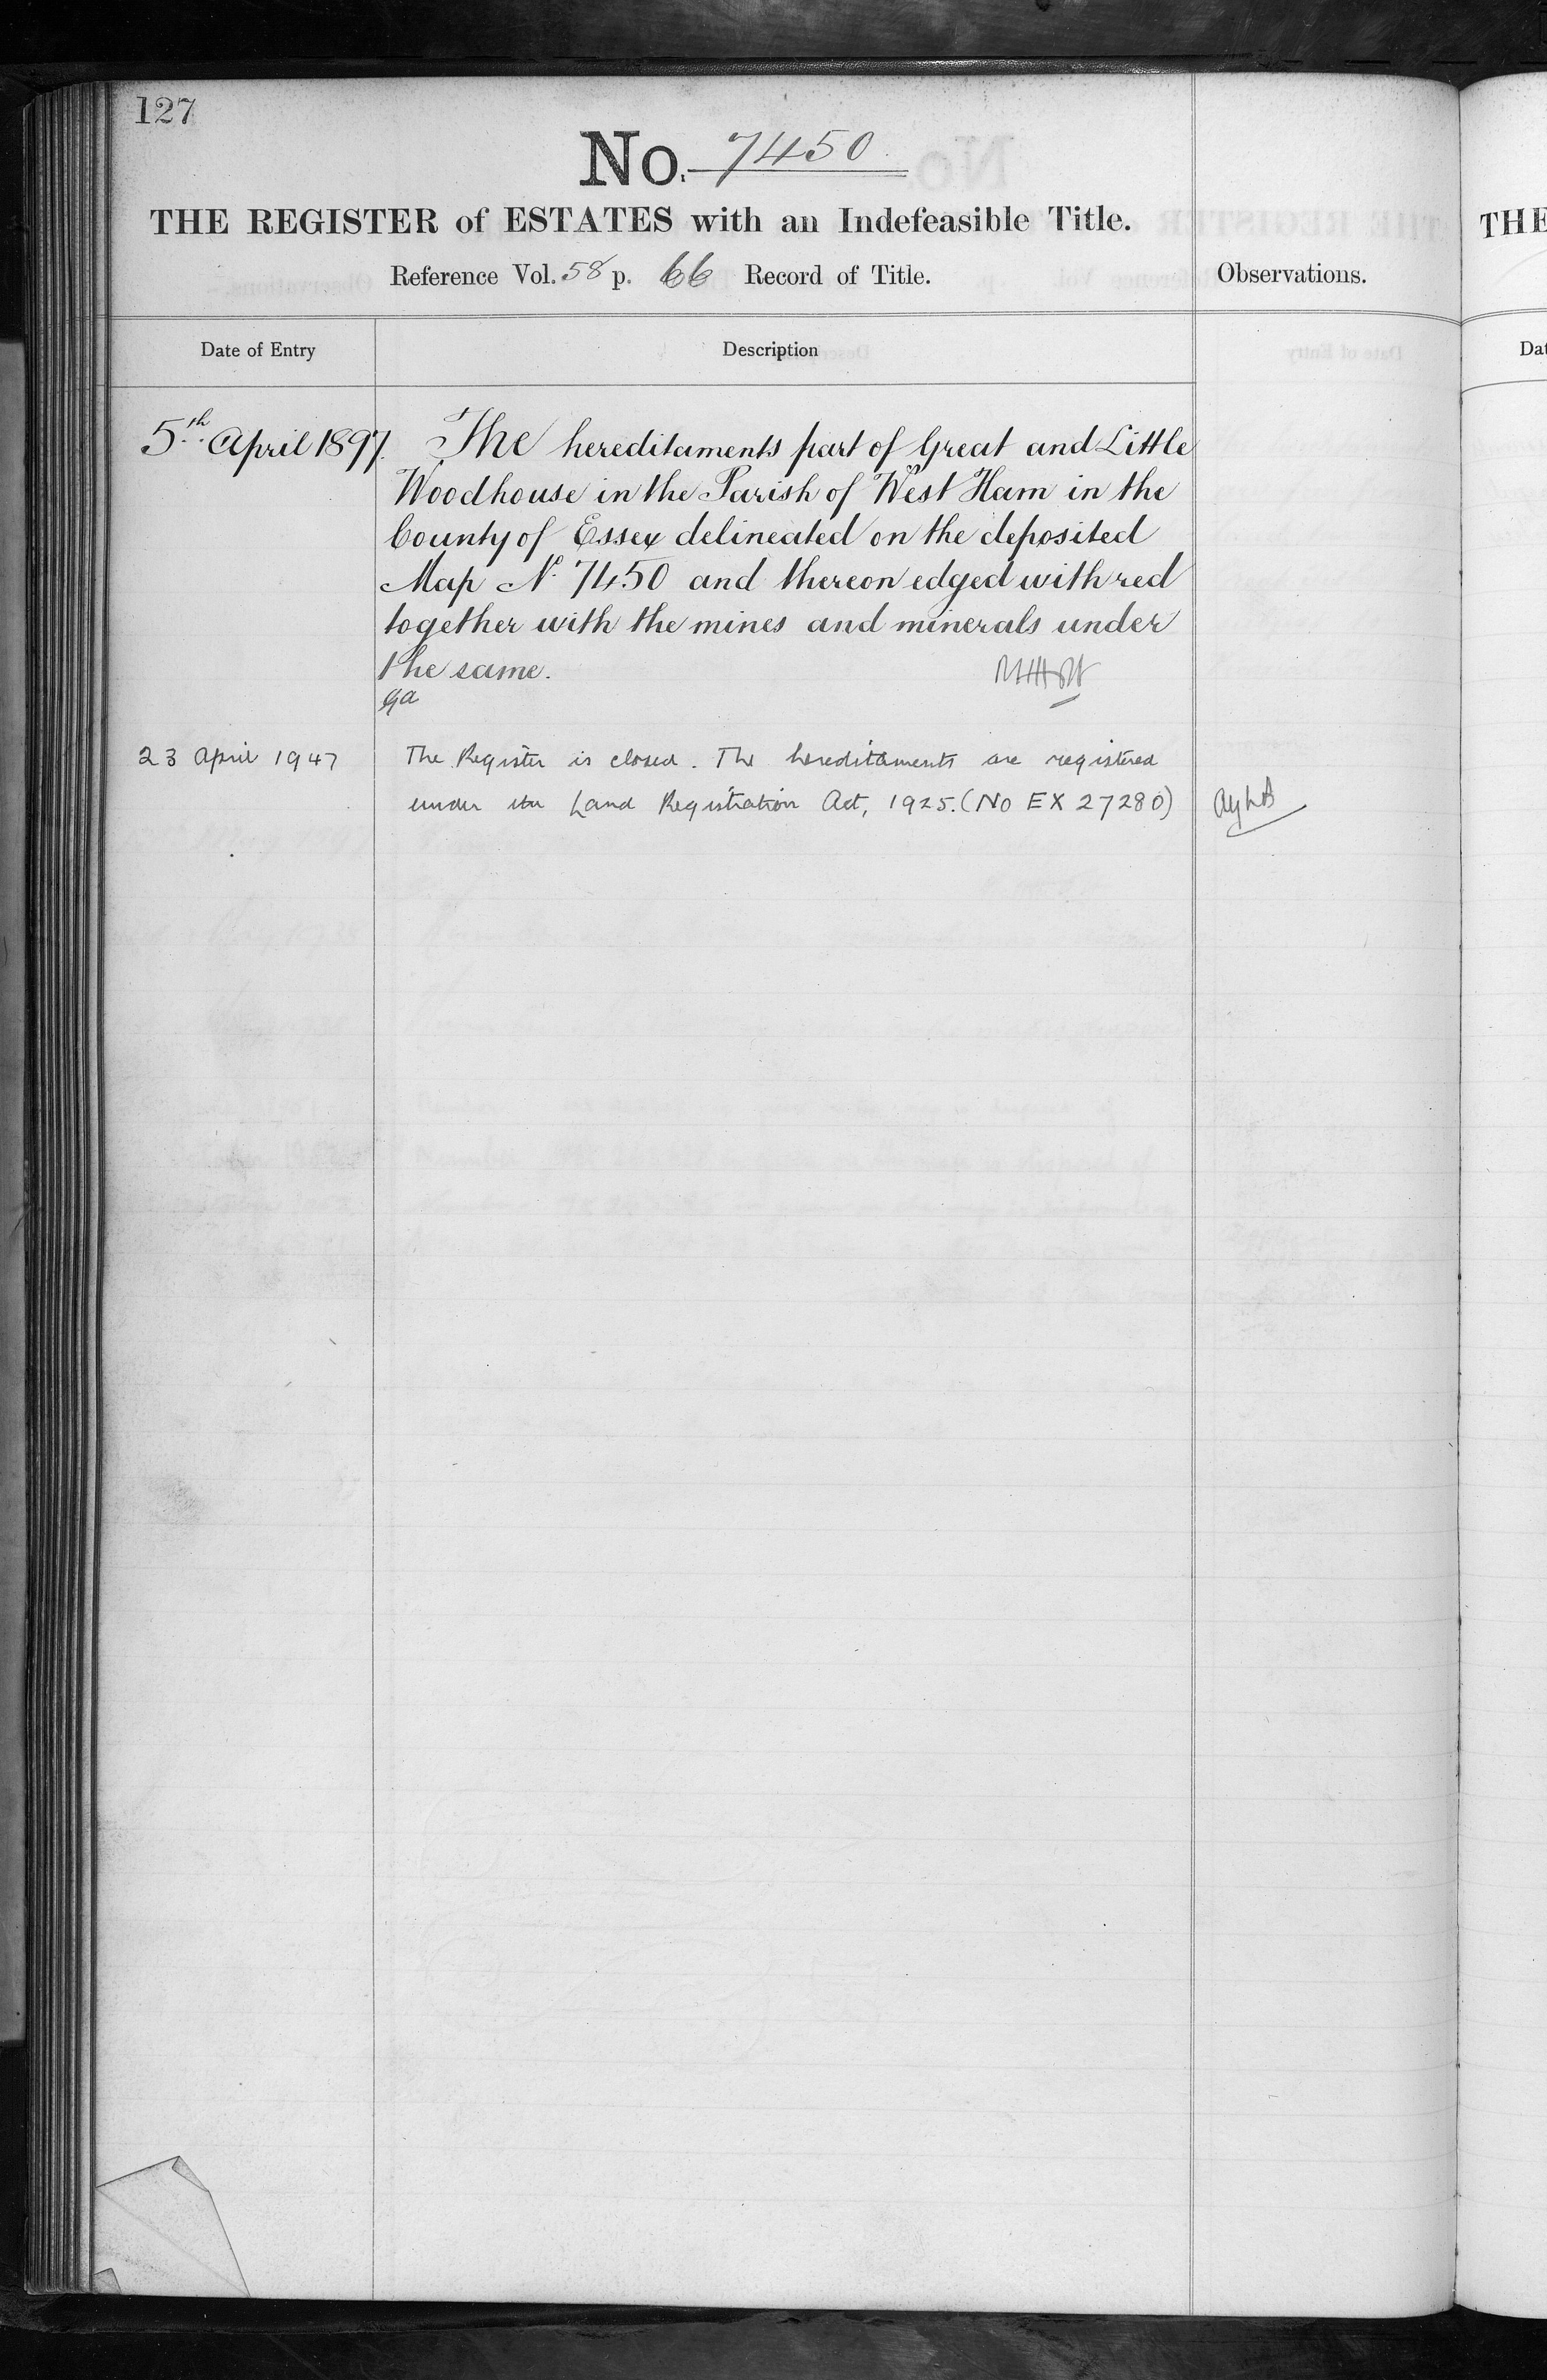 127
No. 7450.
THE REGISTER of ESTATES with an Indefeasible Title.
Reference Vol. 58 p. 66 Record of Title.
Observations.
Date of Entry
Description
5th April 1897.
The hereditaments part of Great and Little
Woodhouse in the Parish of West Ham in the
County of Essex delineated on the deposited
Map No 7450 and thereon edged with red
together with the mines and minerals under
the same.
ga
23 April 1947
The Register is closed. The hereditaments are registered
under the Land Registration Act, 1925. (No EX 27280)
THE
Dat